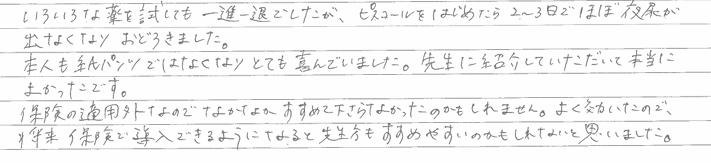 いろいろな薬を試しても一進一退でしたが、ピスコールをはじめたら2〜3日でほぼ夜尿が
出なくなり おどろきました。
本人も紙パンツではなくなりとても喜んでいました。先生に紹介していただいて本当に
よかったです。
保険の適用外なのでなかなか すすめて下さらなかったのかもしれません。よく効いたので、
将来 保険で導入できるようになると先生方もすすめやすいのかもしれないと思いました。